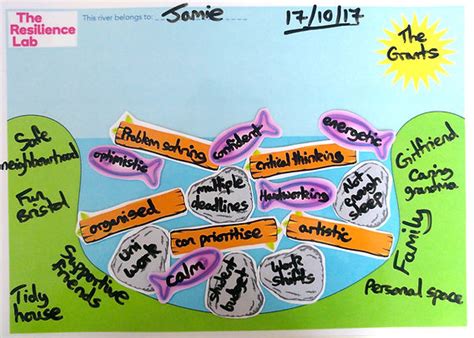 The
Resilience
Lab
This river belongs to:
Jamie
17/10/17
The
Grants
Safe
neighbourhood
Fun
Bristol
Tidy
house
Supportive
friends
Problem solving
confident
energetic
optimistic
critical thinking
multiple
deadlines
Hardworking
Not
enough
sleep
organised
can prioritise
artistic
Uni
work
calm
student
budget
Work
shifts
Girlfriend
Caring
grandma
Family
Personal space